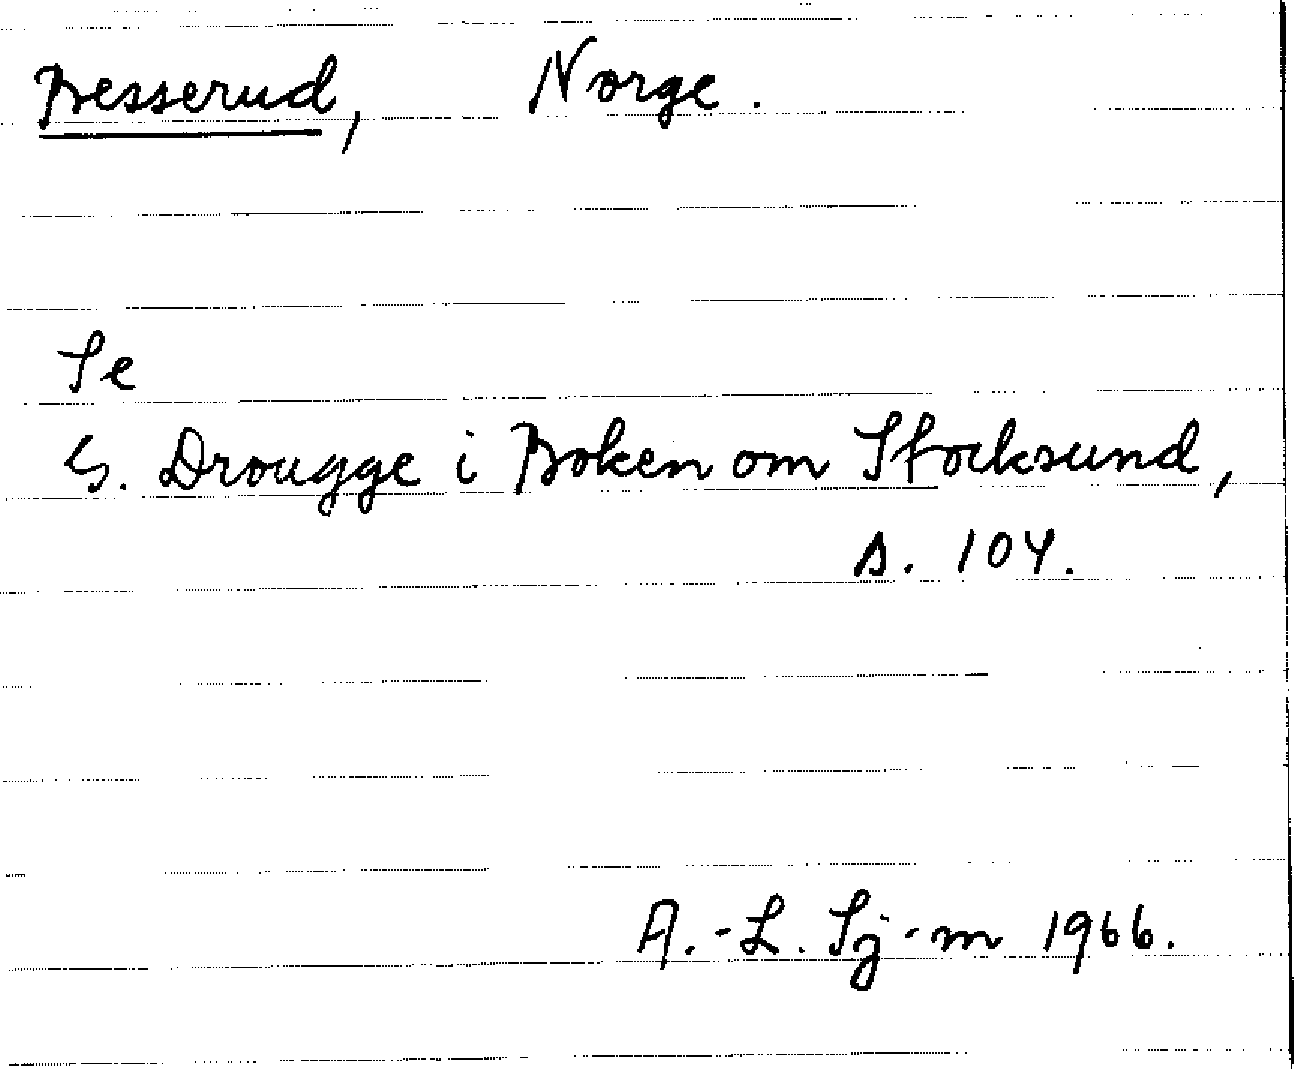 Besserud, Norge.
Se
G. Drougge i Boken om Stocksund,
s. 104.
A.-L. Sj-m 1966.